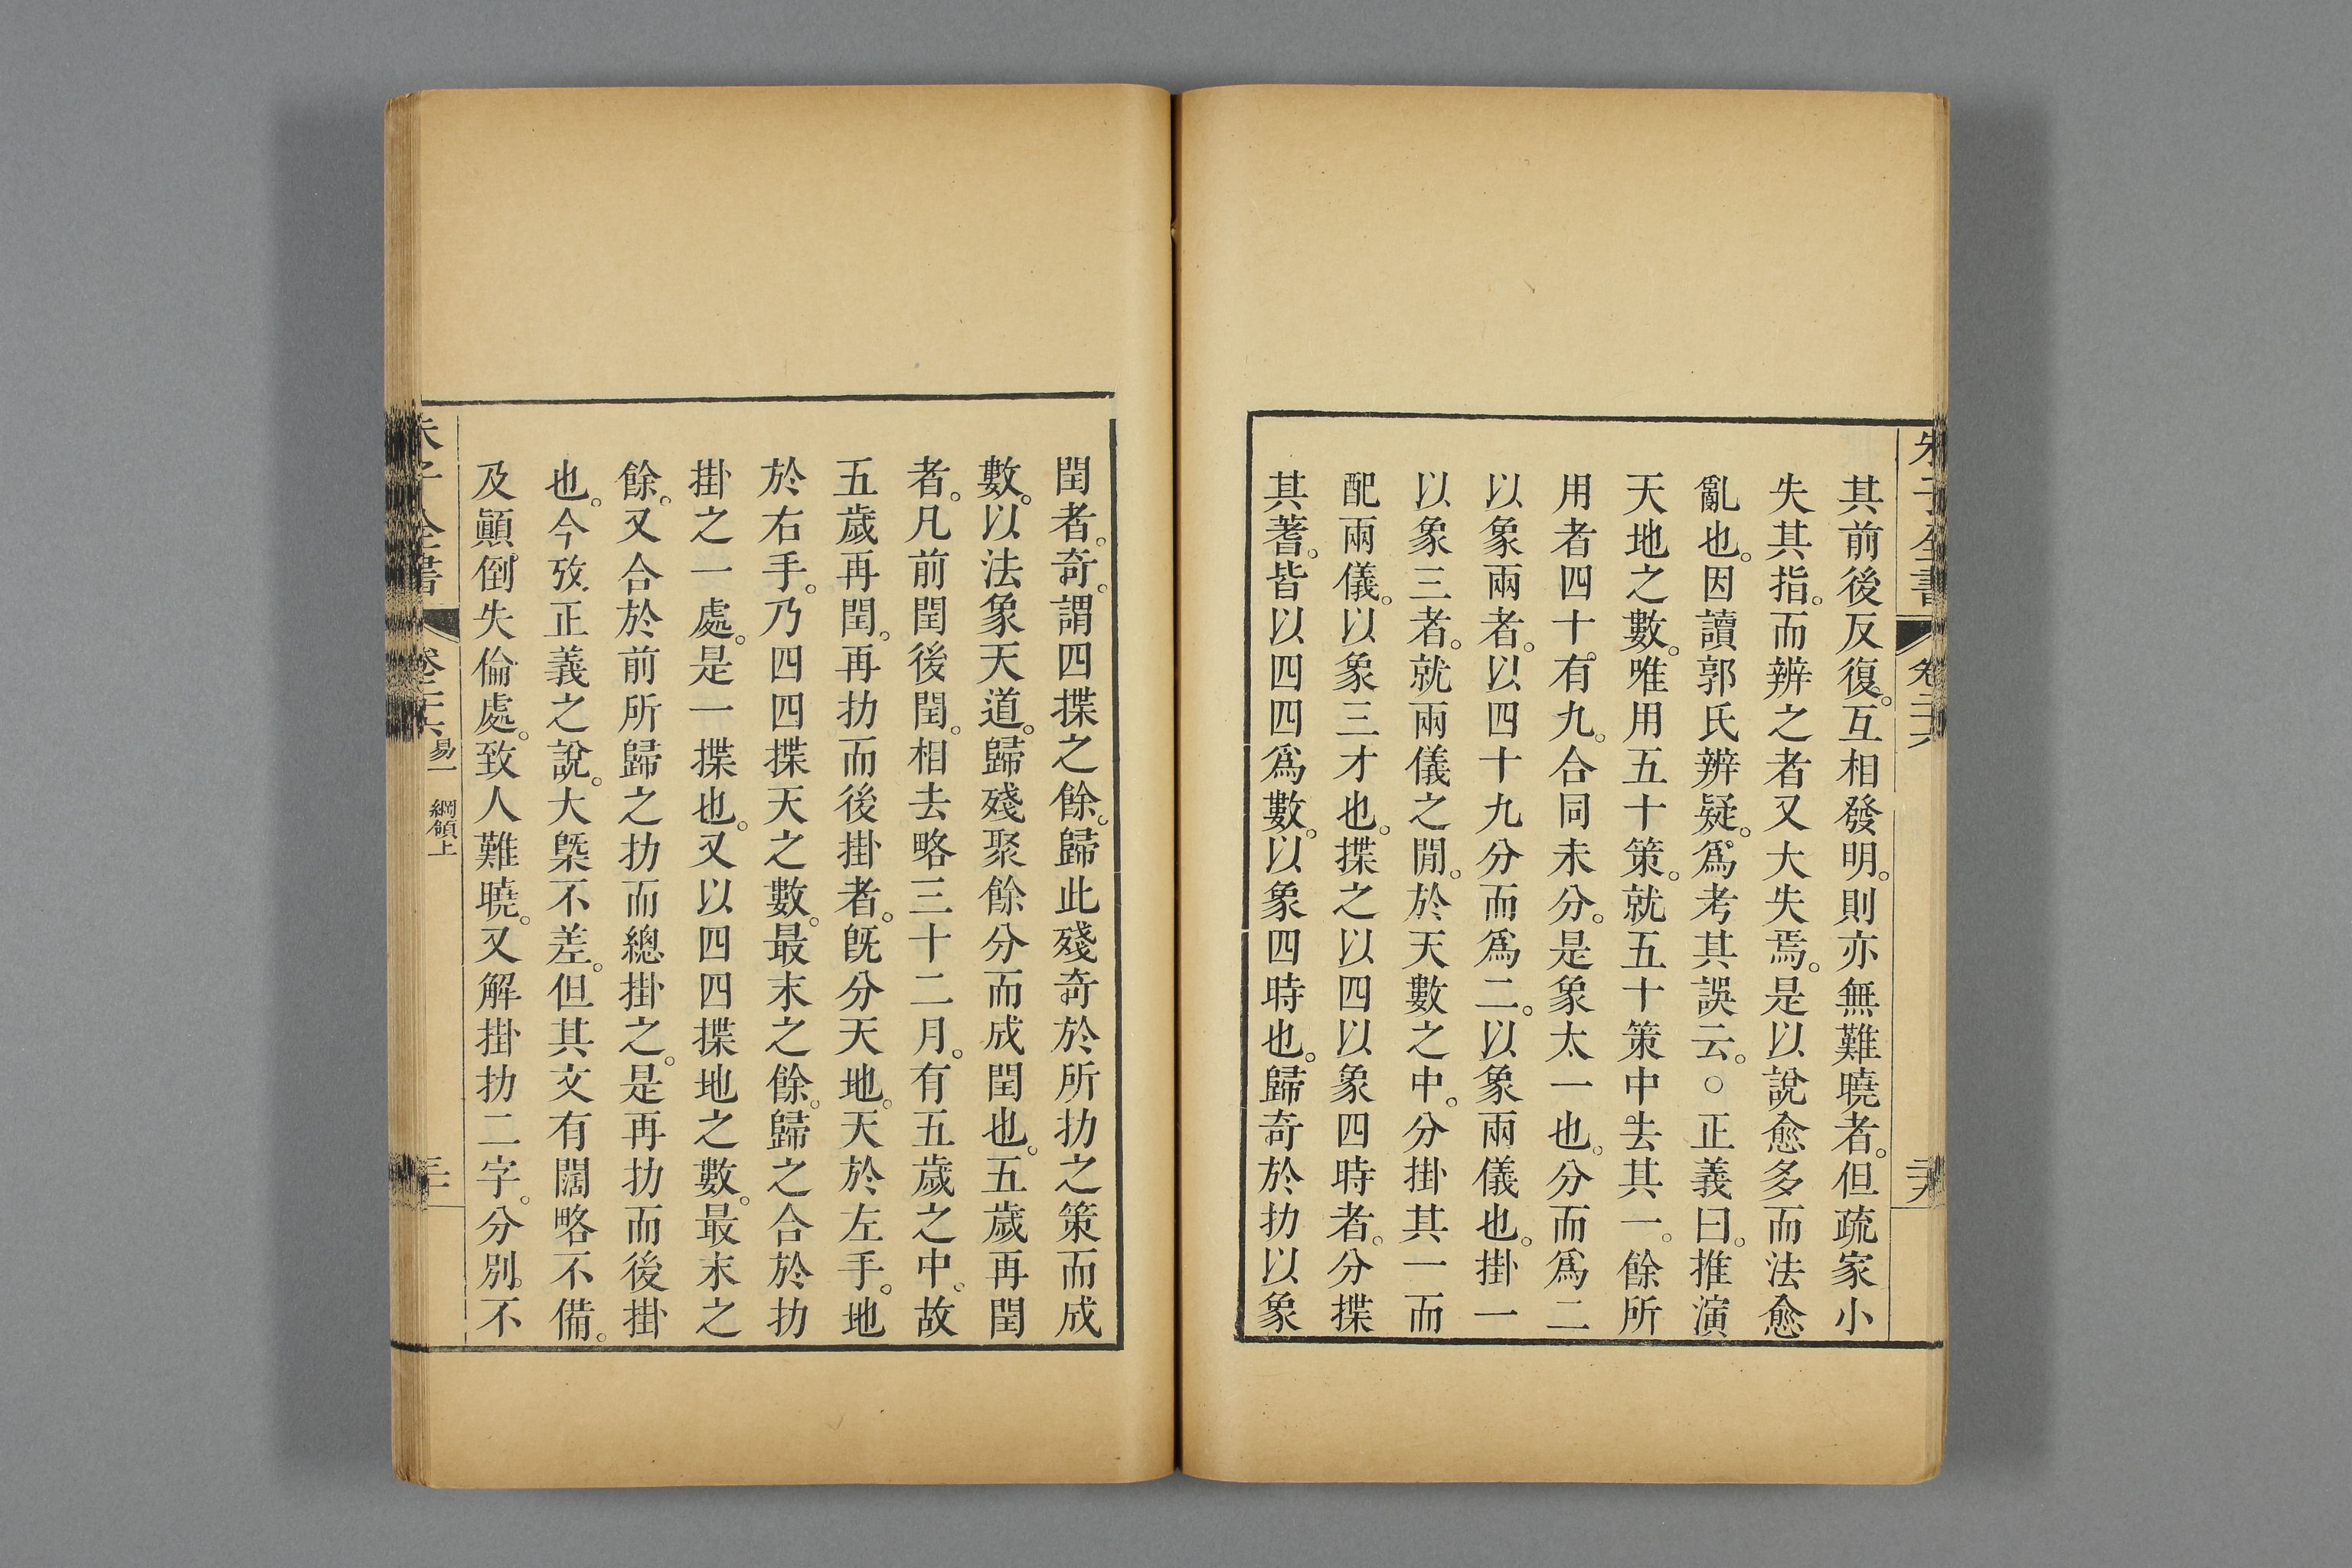 朱子全書 卷二十六
其前後反復。互相發明。則亦無難曉者。但疏家小
失其指。而辨之者又大失焉。是以說愈多而法愈
亂也。因讀郭氏辨疑。爲考其誤云。○正義曰。推演
天地之數。唯用五十策。就五十策中去其一。餘所
用者四十有九。合同未分。是象太一也。分而爲二
以象兩者。以四十九分而爲二。以象兩儀也。掛一
以象三者。就兩儀之閒。於天數之中。分掛其一而
配兩儀。以象三才也。揲之以四以象四時者。分揲
其蓍。皆以四四爲數。以象四時也。歸奇於扐以象
閏者。奇。謂四揲之餘。歸此殘奇於所扐之策而成
數。以法象天道。歸殘聚餘分而成閏也。五歲再閏
者。凡前閏後閏。相去略三十二月。有五歲之中。故
五歲再閏。再扐而後掛者。旣分天地。天於左手。地
於右手。乃四四揲天之數。最末之餘。歸之合於扐
掛之一處。是一揲也。又以四四揲地之數。最末之
餘。又合於前所歸之扐而總掛之。是再扐而後掛
也。今攷正義之說。大槩不差。但其文有闊略不備。
及顚倒失倫處。致人難曉。又解掛扐二字。分別。不
朱子全書 卷二十六 易一 綱領上